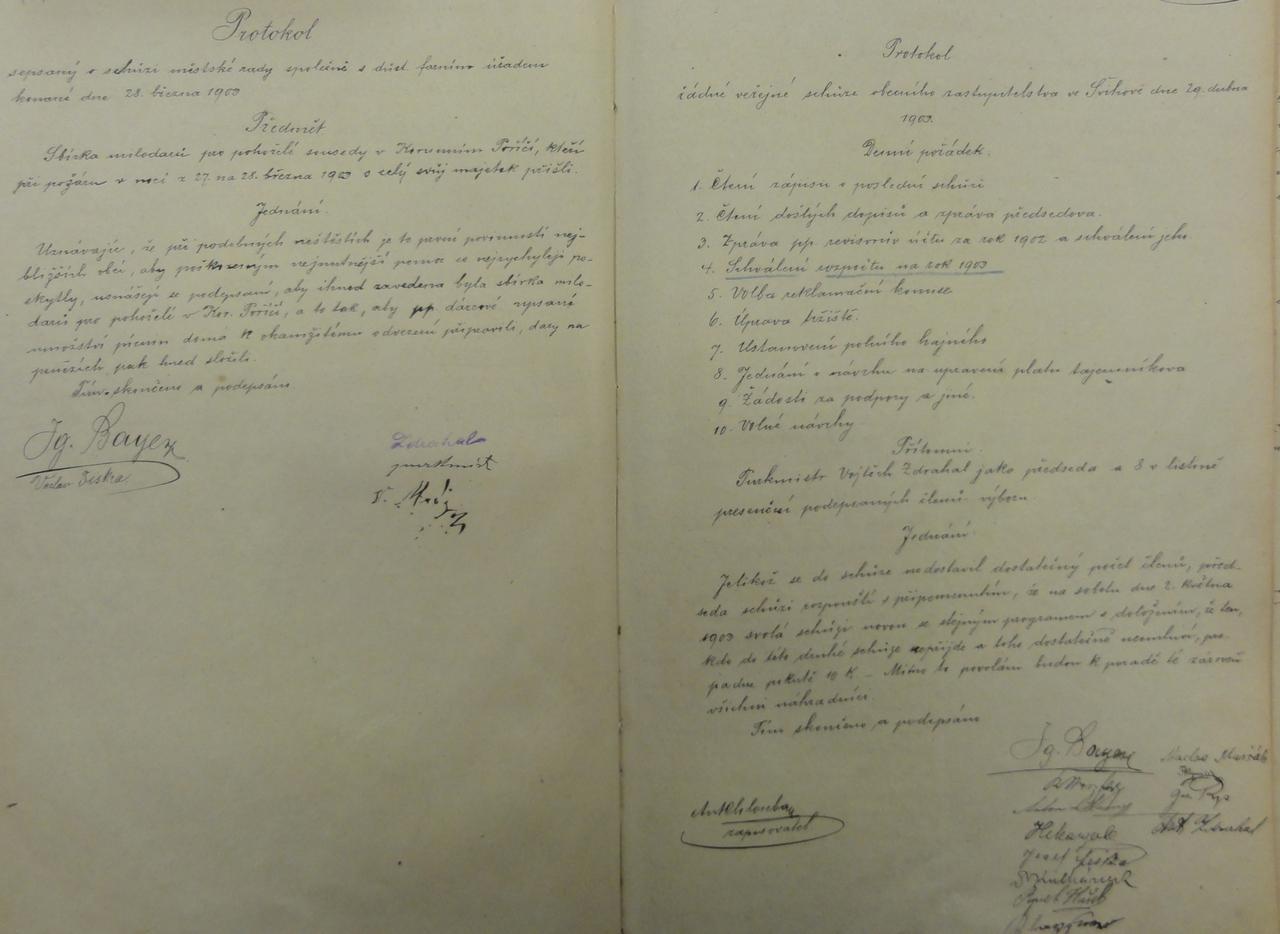 Protokol
sepsaný o schůzi městské rady společně s důst. farním úřadem
konané dne 28. března 1903
Předmět
Sbírka milodarů pro pohořelé sousedy v Korunním Poříčí, kteří
při požáru v noci z 27. na 28. března 1903 o celý svůj majetek přišli.
Jednání.
Uznávajíc, že při podobných neštěstích je to první povinností nej-
bližších obcí, aby poškozeným nejnutnější pomoc co nejrychleji po-
skytly, usnášejí se podepsaní, aby ihned zavedena byla sbírka milo-
darů pro pohořelé v Kor. Poříčí, a to tak, aby pp. dárcové upsané
množství pícnin doma k okamžitému odvezení připravili, dary na
penězích pak hned složili.
Tím skončeno a podepsáno
Ig. Bayer
Václav Šiška
Zdrahala
purkmistr
Protokol
řádné veřejné schůze obecního zastupitelstva ve dne 29. dubna
1903.
Denní pořádek.
1. Čtení zápisu o poslední schůzi
2. Čtení došlých dopisů a zpráva předsedova.
3. Zpráva pp. revisorův účtu za rok 1902 a schválení jeho
4. Schválení rozpočtu na rok 1903
5. Volba reklamační komise
6. Úprava tržiště.
7. Ustanovení polního hajného
8. Jednání o návrhu na upravení platu tajemníkova
9. Žádosti za podpory a jiné.
10. Volné návrhy
Přítomni.
Purkmistr Vojtěch Zdrahal jako předseda a 8 v listině
presenční podepsaných členů výboru.
Jednání.
Jelikož se do schůze nedostavil dostatečný počet členů, před-
seda schůzi rozpouští s připomenutím, že na sobotu dne 2. května
1903 svolá schůzi novou se stejným programem s doložením, že ten,
kdo do této druhé schůze nepřijde a toho dostatečně neomluví, pro-
padne pokutě 10 K. – Mimo to povoláni budou k poradě té zároveň
všichni náhradníci.
Tím skončeno a podepsáno
Ig. Bayer
Ant. Zdrahal
Josef
zapisovatel